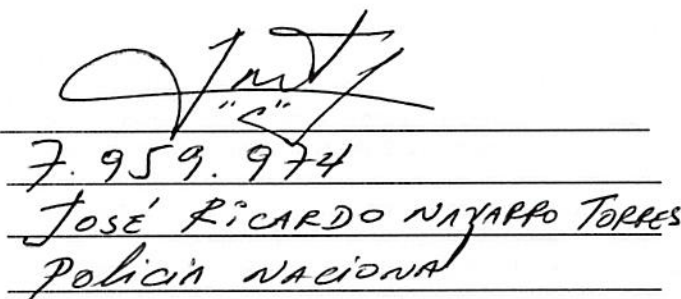 "C"
7.959.974
JOSÉ RICARDO NAVARRO TORRES
Policía NACIONAL